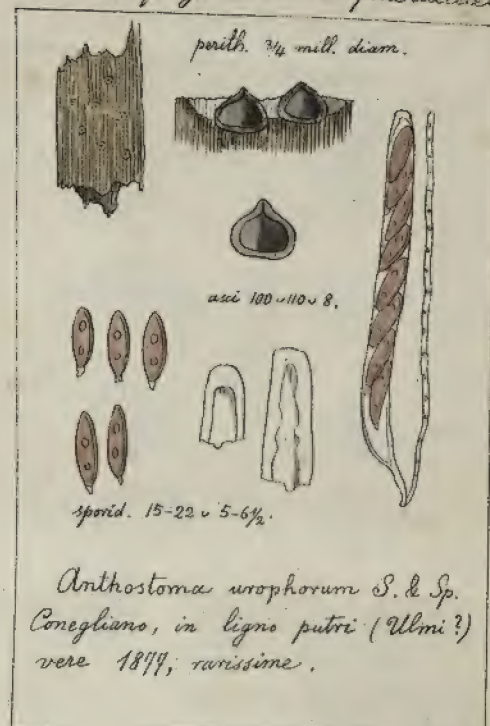 perith. ¾ mill. diam.
asci 100 ᵕ 110 ᵕ 8.
sporid. 15-22 ᵕ 5-6½.
Anthostoma urophorum S. & Sp.
Conegliano, in ligno putri (Ulmi?)
vere 1877, rarissime.